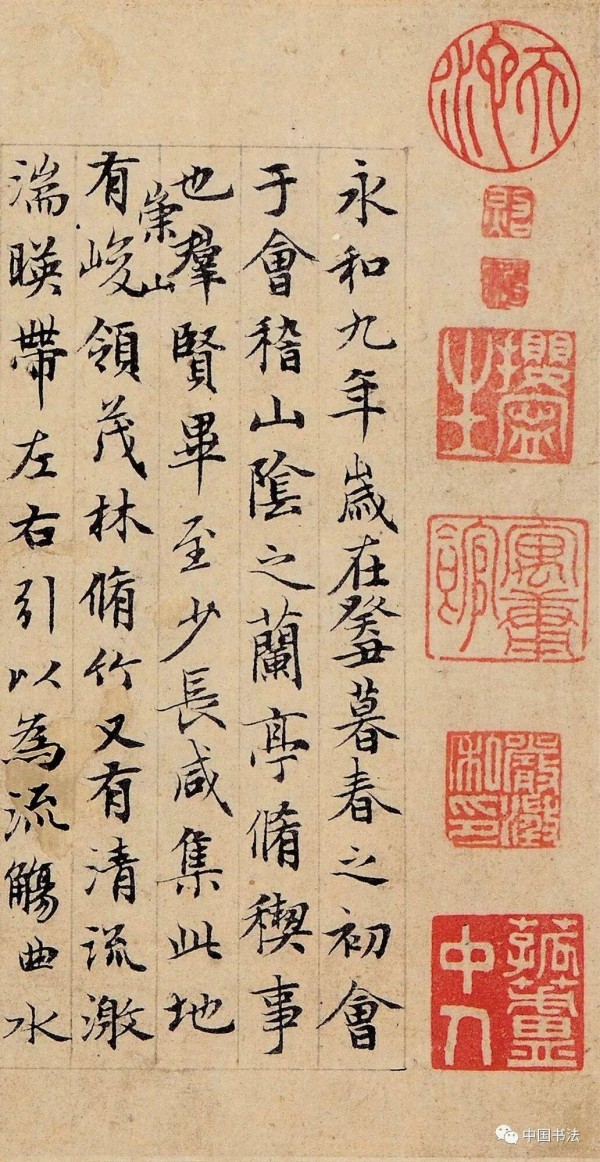 嚴澂私印
永和九年歲在癸丑暮春之初會
于會稽山陰之蘭亭脩稧事
也羣賢畢至少長咸集此地
有崇山峻領茂林脩竹又有清流激
湍暎帶左右引以為流觴曲水
中国书法